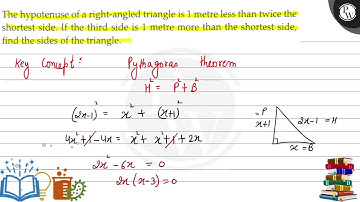 The hypotenuse of a right-angled triangle is 1 metre less than twice the
shortest side. If the third side is 1 metre more than the shortest side,
find the sides of the triangle.
Key Concept: Pythagoras theorem
H² = P² + B²
(2x-1)² = x² + (x+1)²
4x²+1-4x = x² + x²+1+2x
2x²-6x = 0
2x(x-3)=0
=P
x+1
2x-1 = H
x = B